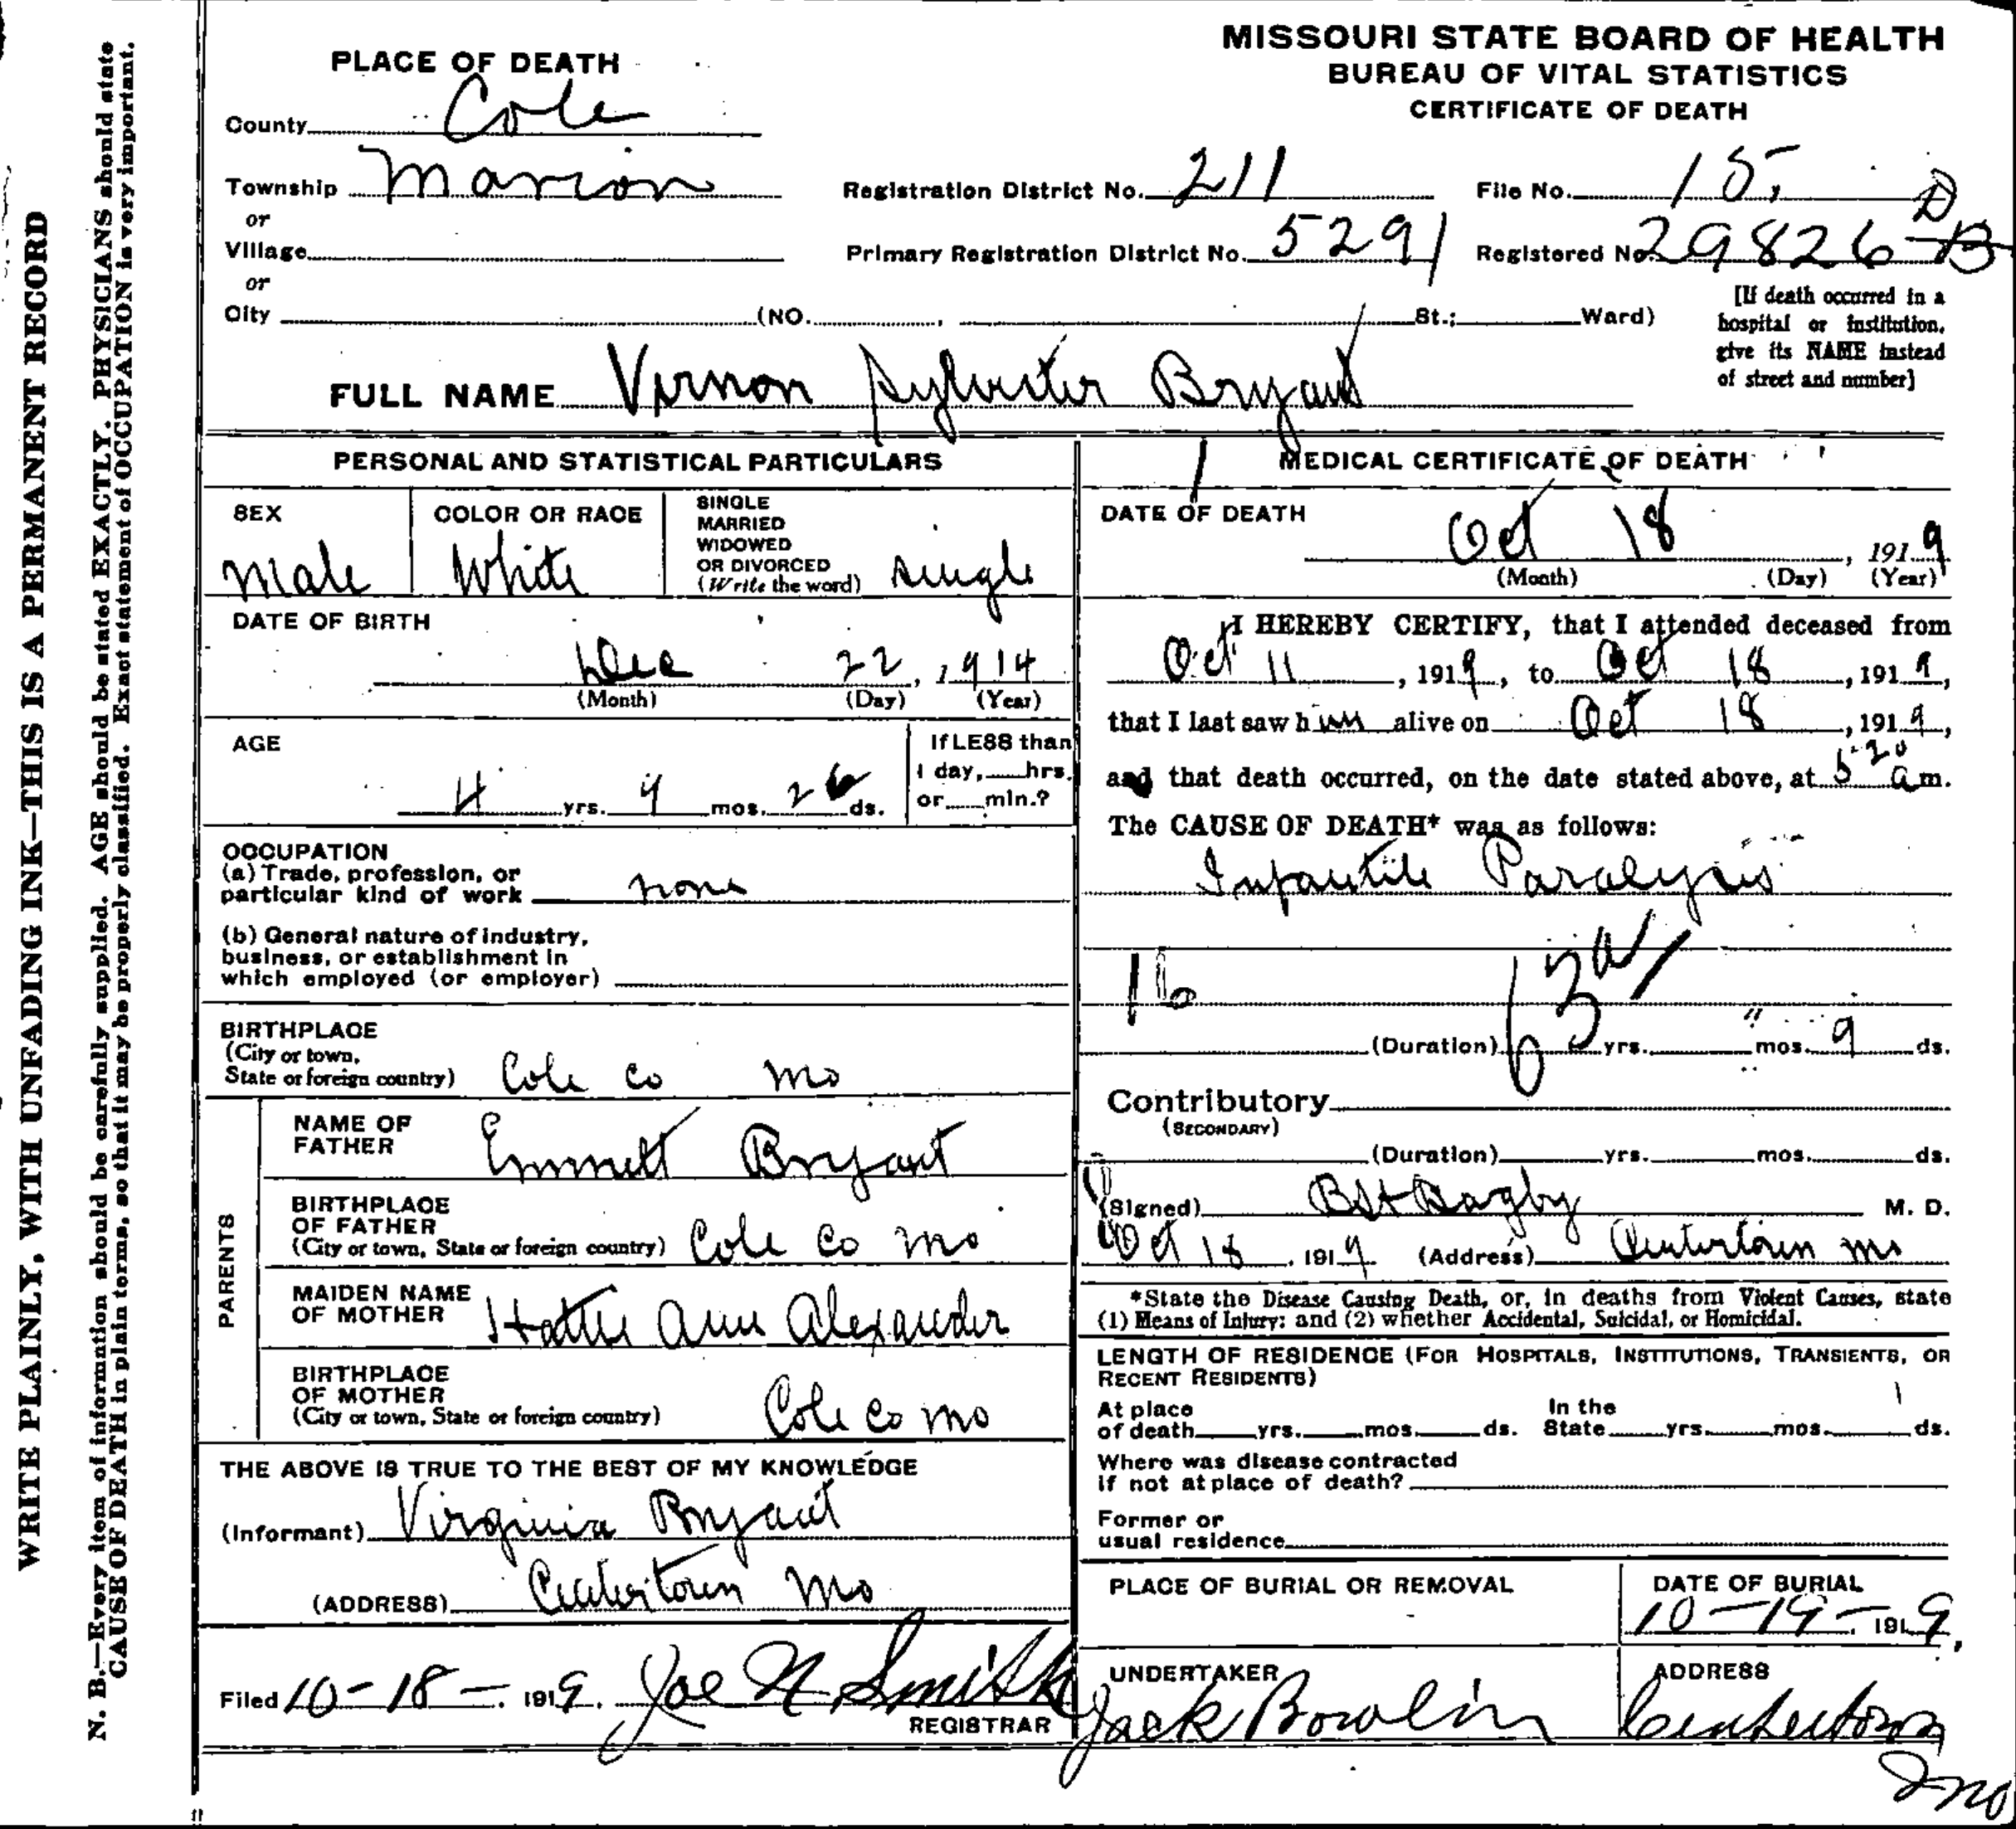 WRITE PLAINLY, WITH UNFADING INK—THIS IS A PERMANENT RECORD
N. B.—Every item of information should be carefully supplied. AGE should be stated EXACTLY. PHYSICIANS should state
CAUSE OF DEATH in plain terms, so that it may be properly classified. Exact statement of OCCUPATION is very important.
MISSOURI STATE BOARD OF HEALTH
BUREAU OF VITAL STATISTICS
CERTIFICATE OF DEATH
PLACE OF DEATH
County Cole
Township Marion
or
Village
or
City (NO. St.; Ward)
Registration District No. 211
Primary Registration District No. 5291
File No. 15
Registered No 29826 D B
[If death occurred in a
hospital or institution,
give its NAME instead
of street and number]
FULL NAME Vernon Sylvester Bryant
PERSONAL AND STATISTICAL PARTICULARS
SEX
Male
COLOR OR RACE
White
SINGLE
MARRIED
WIDOWED
OR DIVORCED
(Write the word) single
DATE OF BIRTH
Dec 22, 1914
(Month) (Day) (Year)
AGE
4 yrs. 9 mos. 26 ds.
If LESS than
1 day, hrs.
or min.?
OCCUPATION
(a) Trade, profession, or
particular kind of work none
(b) General nature of industry,
business, or establishment in
which employed (or employer)
BIRTHPLACE
(City or town,
State or foreign country) Cole Co Mo
PARENTS
NAME OF
FATHER Emmett Bryant
BIRTHPLACE
OF FATHER
(City or town, State or foreign country) Cole Co Mo
MAIDEN NAME
OF MOTHER Hattie Ann Alexander
BIRTHPLACE
OF MOTHER
(City or town, State or foreign country) Cole Co Mo
THE ABOVE IS TRUE TO THE BEST OF MY KNOWLEDGE
(Informant) Virginia Bryant
(ADDRESS) Centertown Mo
Filed 10-18-, 1919. Joe N Smith
REGISTRAR
MEDICAL CERTIFICATE OF DEATH
DATE OF DEATH
Oct 18, 1919
(Month) (Day) (Year)
I HEREBY CERTIFY, that I attended deceased from
Oct 11, 1919, to Oct 18, 1919,
that I last saw him alive on Oct 18, 1919,
and that death occurred, on the date stated above, at 5-20 a m.
The CAUSE OF DEATH* was as follows:
Infantile Paralysis
(Duration) yrs. mos. 9 ds.
Contributory
(SECONDARY)
(Duration) yrs. mos. ds.
(Signed) Bagby M. D.
Oct 18, 1919 (Address) Centertown Mo
*State the Disease Causing Death, or, in deaths from Violent Causes, state
(1) Means of Injury; and (2) whether Accidental, Suicidal, or Homicidal.
LENGTH OF RESIDENCE (FOR HOSPITALS, INSTITUTIONS, TRANSIENTS, OR
RECENT RESIDENTS)
At place
of death yrs. mos. ds.
In the
State yrs. mos. ds.
Where was disease contracted
if not at place of death?
Former or
usual residence
PLACE OF BURIAL OR REMOVAL
DATE OF BURIAL
10-19-1919,
UNDERTAKER
Jack Bowlin
ADDRESS
Centertown
Mo